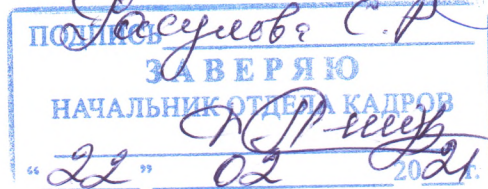 ПОДПИСЬ Расулова С.Р
ЗАВЕРЯЮ
НАЧАЛЬНИК ОТДЕЛА КАДРОВ
"22" 02 2021 г.